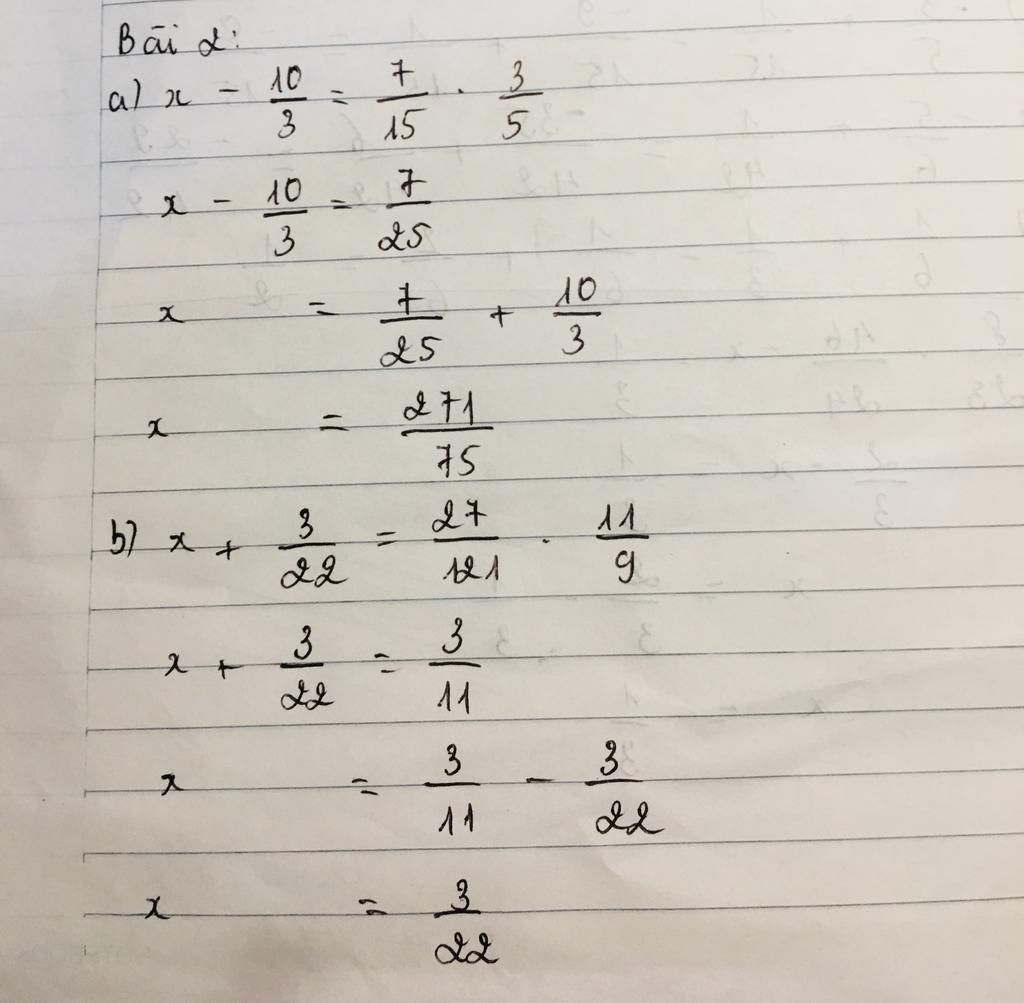 Bài 2:
a) x - 10/3 = 7/15 . 3/5
x - 10/3 = 7/25
x = 7/25 + 10/3
x = 271/75
b) x + 3/22 = 27/121 . 11/9
x + 3/22 = 3/11
x = 3/11 - 3/22
x = 3/22